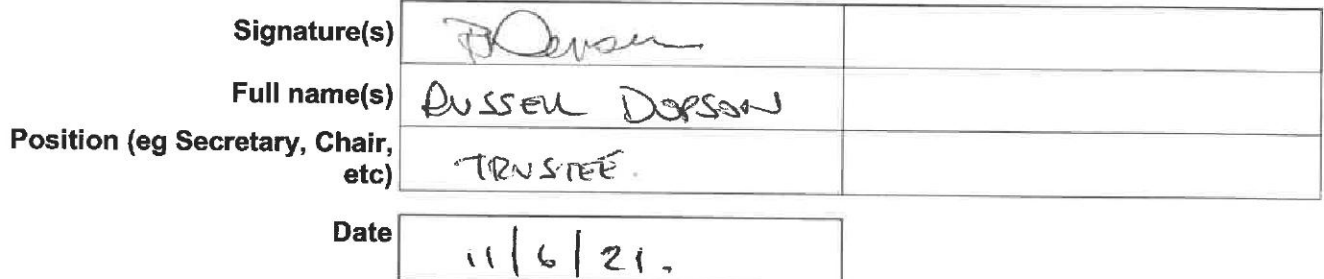 Signature(s)
Full name(s) RUSSELL DOPSON
Position (eg Secretary, Chair,
etc) TRUSTEE.
Date 11/6/21.